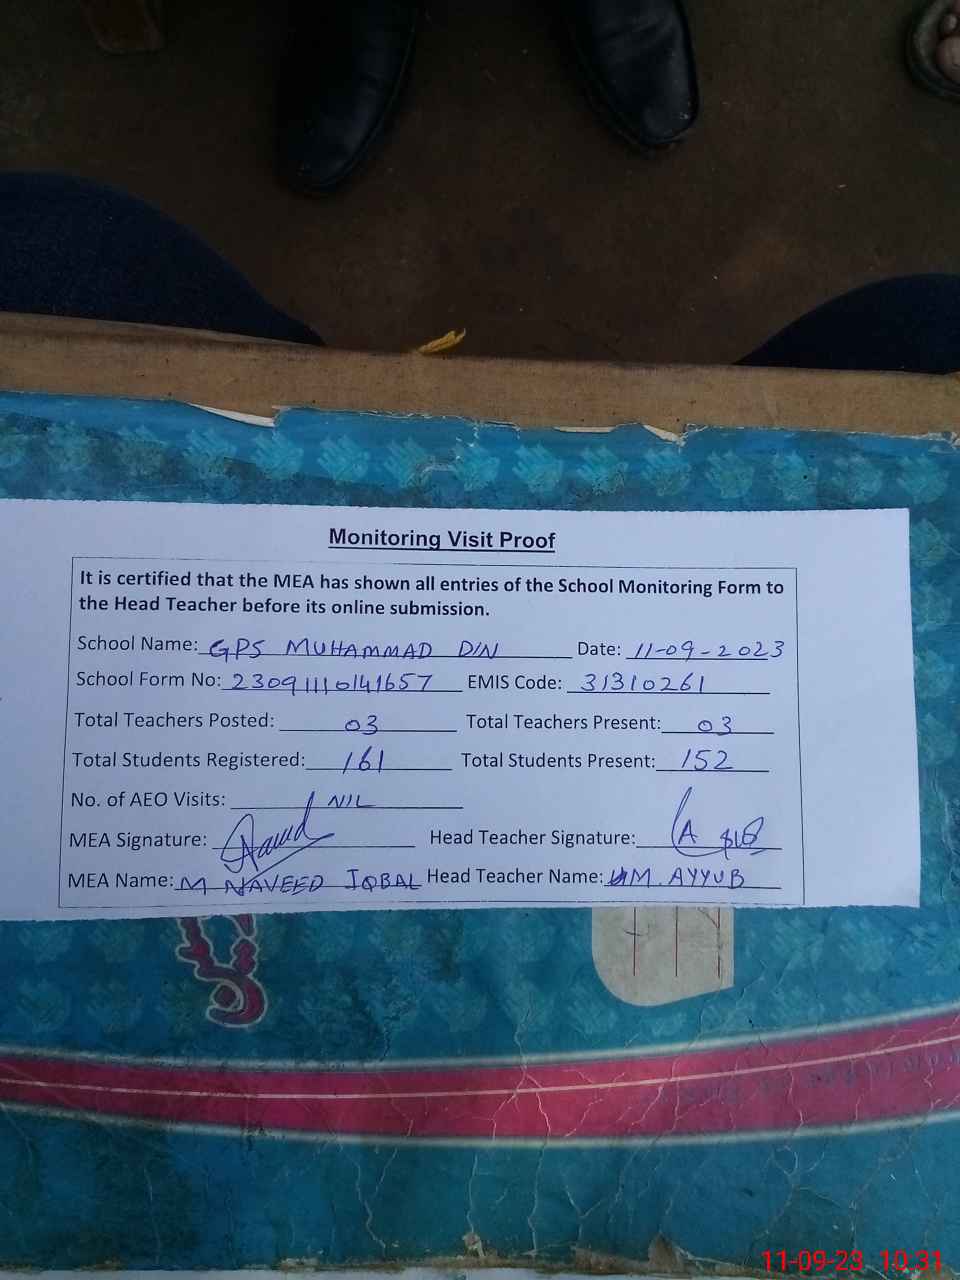 Monitoring Visit Proof
It is certified that the MEA has shown all entries of the School Monitoring Form to
the Head Teacher before its online submission.
School Name: GPS MUHAMMAD DIN Date: 11-09-2023
School Form No: 23091110141657 EMIS Code: 31310261
Total Teachers Posted: 03 Total Teachers Present: 03
Total Students Registered: 161 Total Students Present: 152
No. of AEO Visits: NIL
MEA Signature: Head Teacher Signature:
MEA Name: M NAVEED IQBAL Head Teacher Name: M. AYYUB
11-09-23 10:31